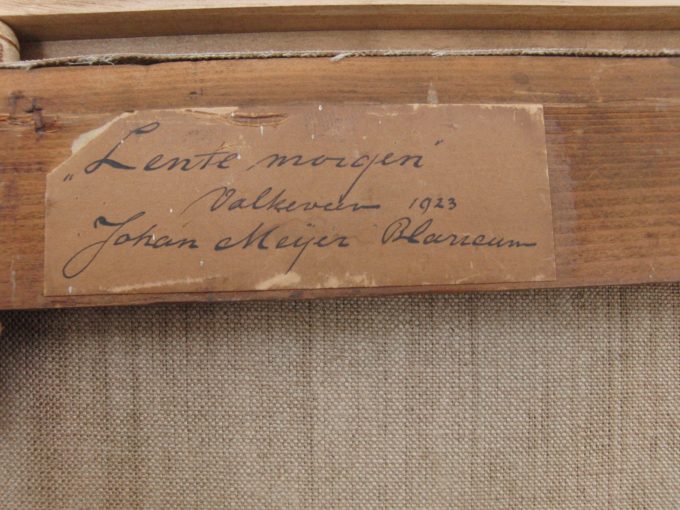 „Lente morgen"
Valkeveen 1923
Johan Meijer Blaricum